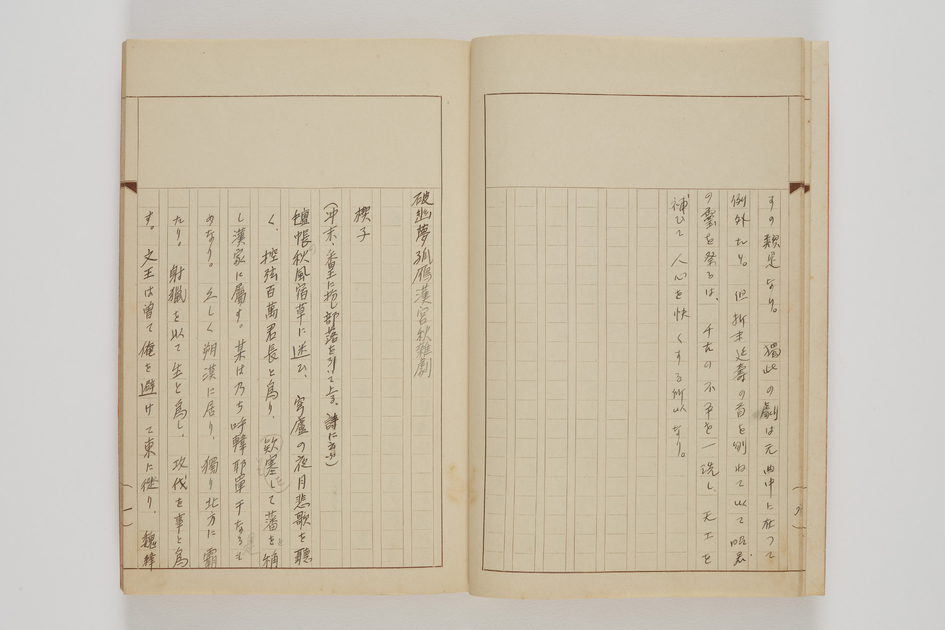 すの類是なり。獨此の劇は元曲中に在つて
例外たり。但斬毛延壽の首を刎ねて以て明君
の靈を祭るは、千古の不平を一洗し、天工を
補ひて人心を快くする所以なり。
破幽夢孤鴈漢宮秋雜劇
楔子
(冲末、番王に扮し部落を引いて上る、詩に云ふ)
氈帳秋風宿草に迷ひ、穹廬の夜月悲歌を聽
く、控弦百萬君長と爲り、欵塞して藩を稱
し漢家に屬す。某は乃ち呼韓耶單于なるも
のなり。久しく朔漠に居り、獨り北方に霸
たり。射獵を以て生と爲し、攻伐を事と爲
す。文王は曽て俺を避けて東に徙り、魏絳
(一)